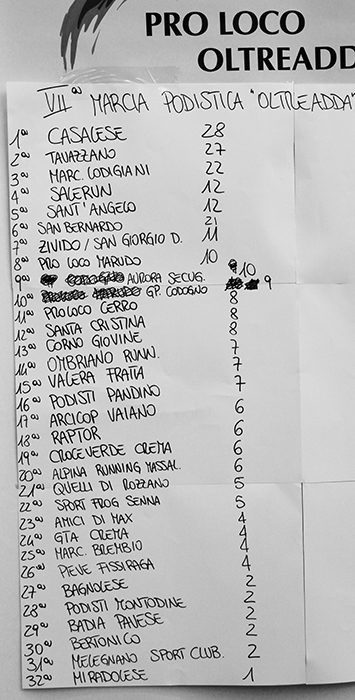 PRO LOCO
OLTREADD
VIIª MARCIA PODISTICA "OLTREADDA"
1ª CASALESE 28
2ª TAVAZZANO 27
3ª MARC. LODIGIANI 22
4ª SALERUN 12
5ª SANT'ANGELO 12
6ª SAN BERNARDO 21
7ª ZIVIDO/SAN GIORGIO D. 11
8ª PRO LOCO MARUDO 10
9ª AURORA SECUG. 10
10ª GP. CODOGNO 9
11ª PROLOCO CERRO 8
12ª SANTA CRISTINA 8
13ª CORNO GIOVINE 8
14ª OMBRIANO RUNN. 7
15ª VALERA FRATTA 7
16ª PODISTI PANDINO 7
17ª ARCICOP VAIANO 6
18ª RAPTOR 6
19ª CROCEVERDE CREMA 6
20ª ALPINA RUNNING MASSAL. 6
21ª QUELLI DI ROZZANO 5
22ª SPORT FROG SENNA 5
23ª AMICI DI MAX 4
24ª GTA CREMA 4
25ª MARC. BREMBIO 4
26ª PIEVE FISSIRAGA 4
27ª BAGNOLESE 2
28ª PODISTI MONTODINE 2
29ª BADIA PAVESE 2
30ª BERTONICO 2
31ª MELEGNANO SPORT CLUB. 2
32ª MIRADOLESE 1